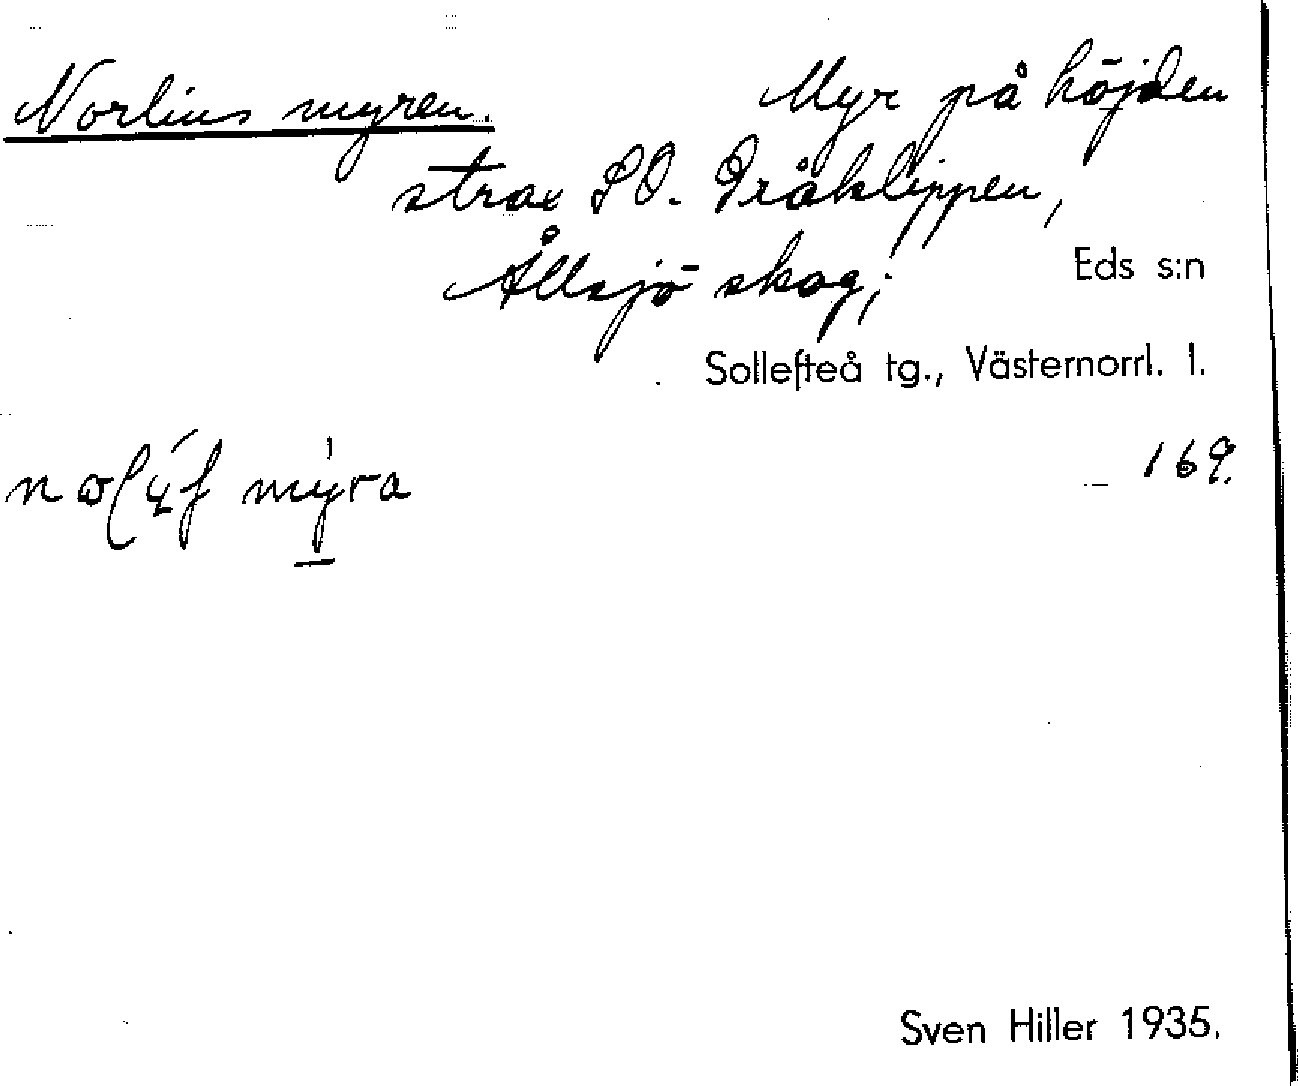 Norlins myren. Myr på höjden
strax SO. Tråklippen,
Ållsjö skog; Eds s:n
Sollefteå tg., Västernorrl. l.
myra 169.
Sven Hiller 1935.